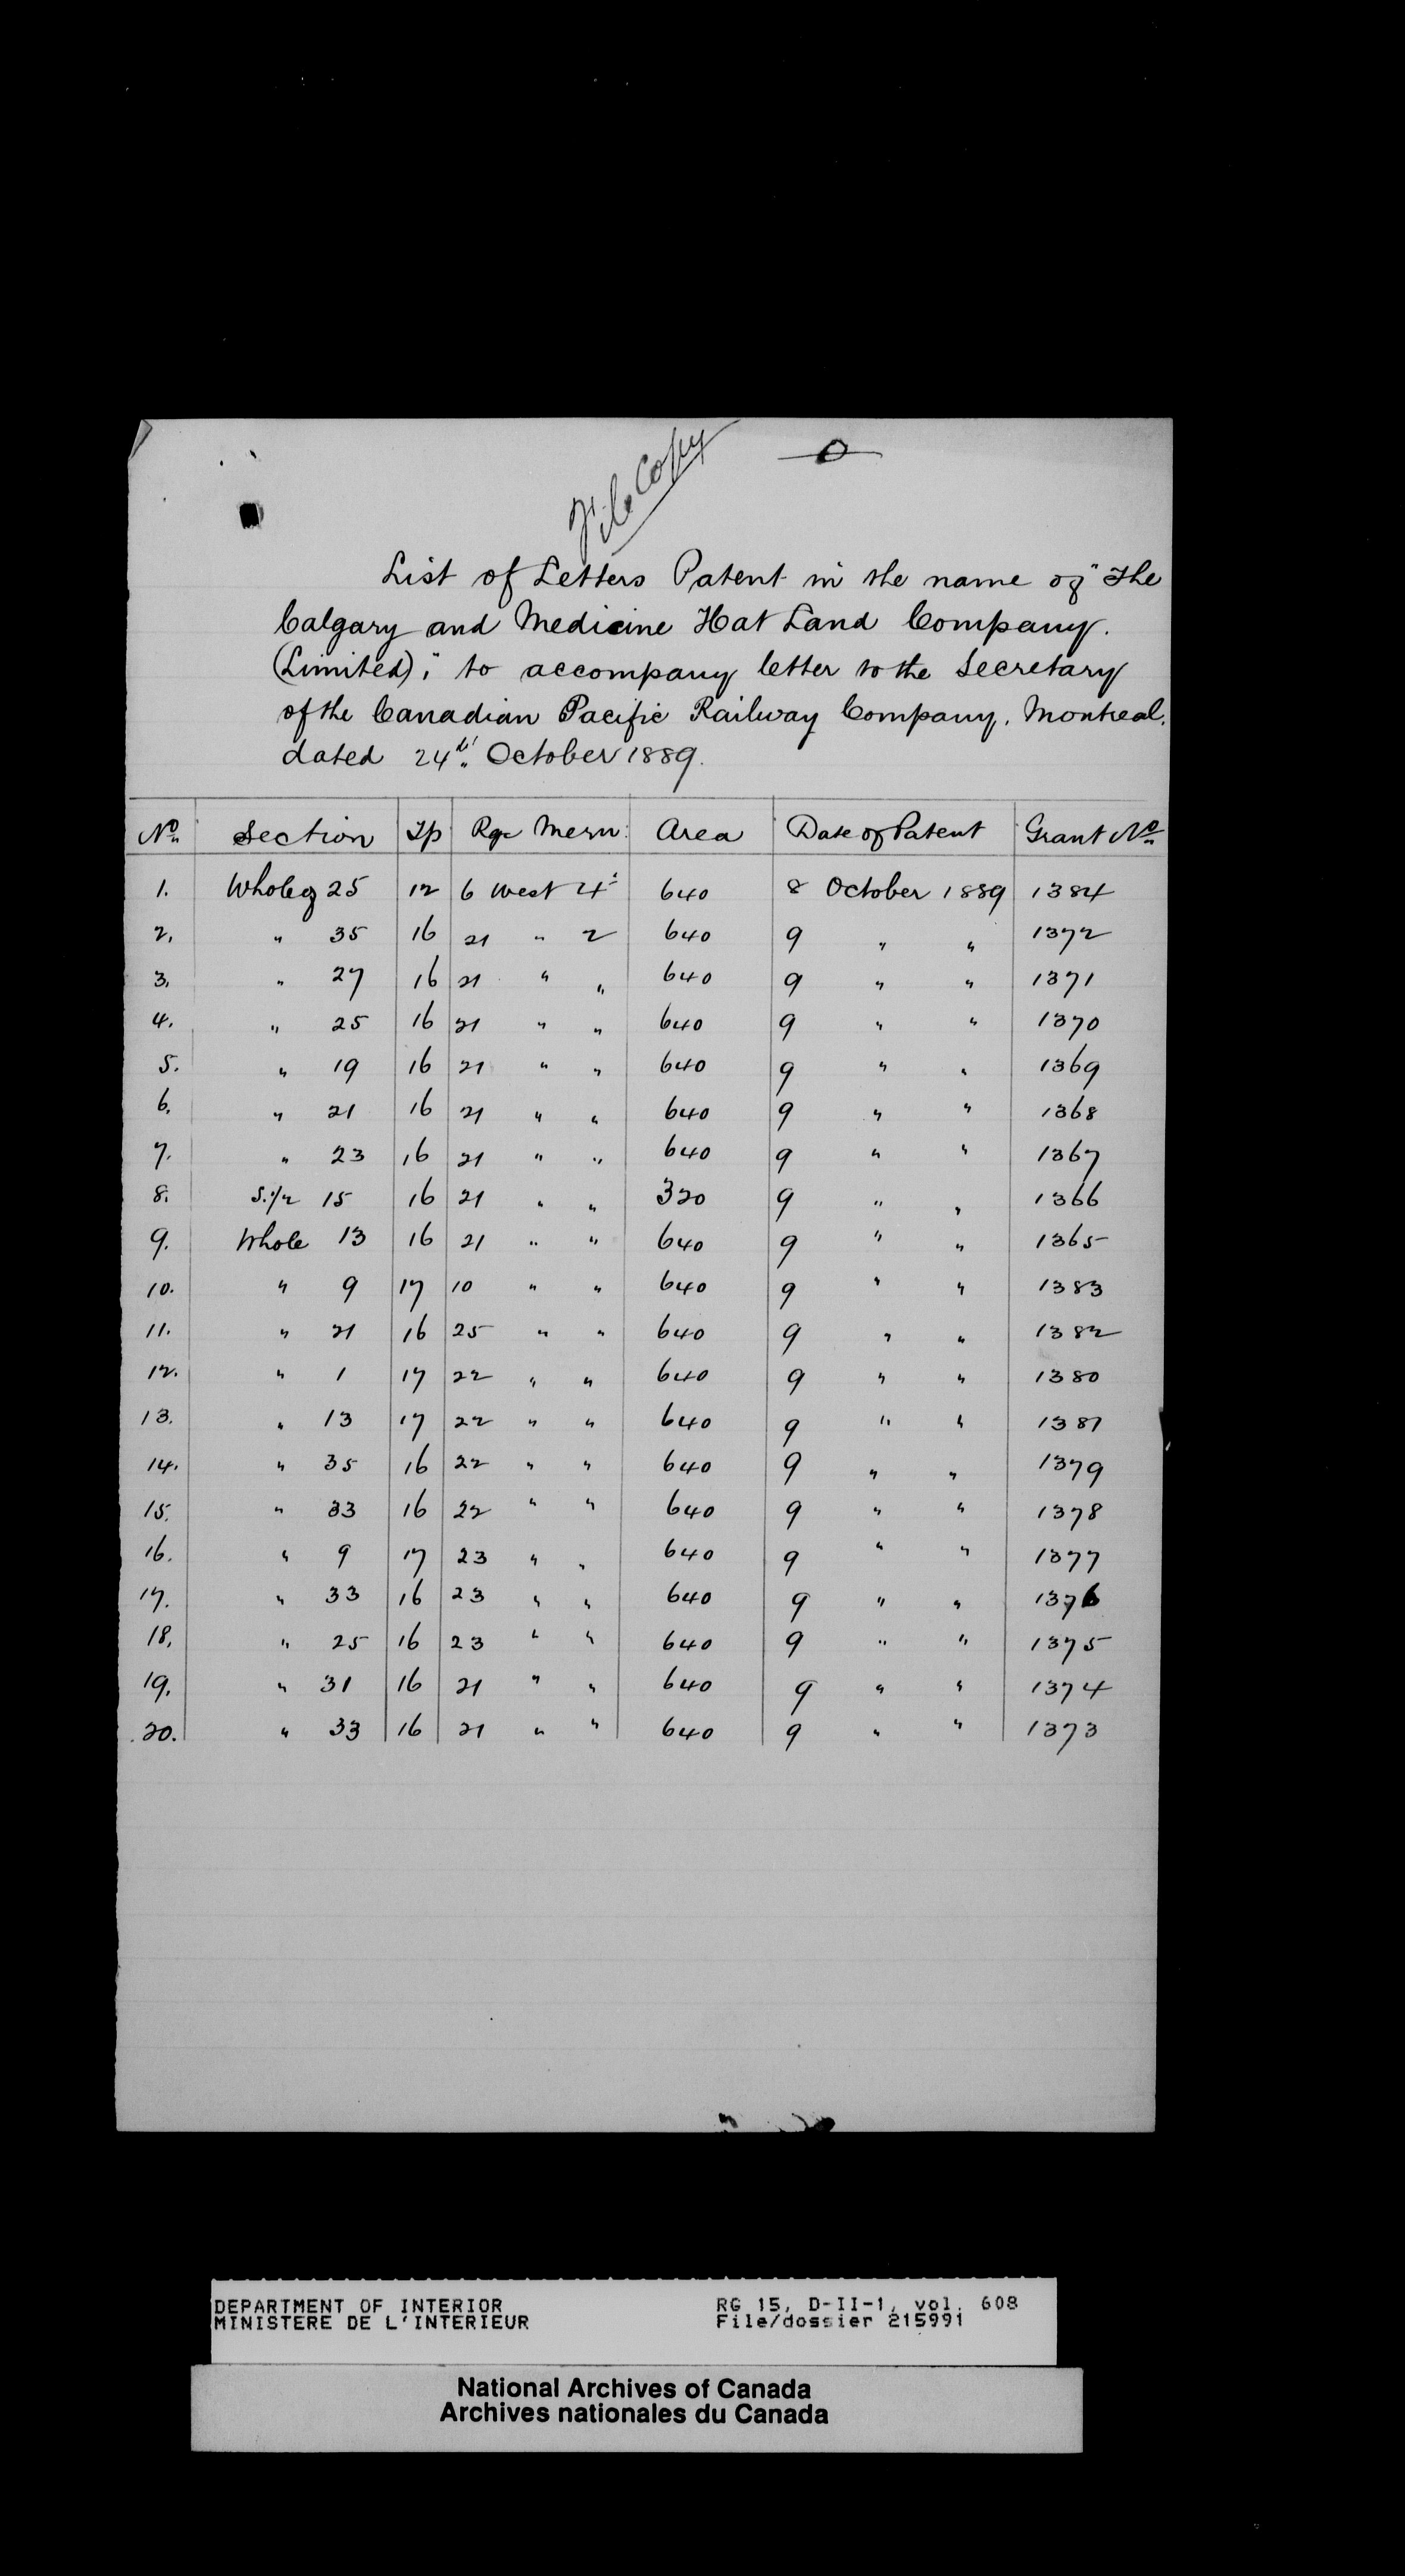 File Copy
List of Letters Patent in the name of "The
Calgary and Medicine Hat Land Company.
(Limited)," to accompany letter to the Secretary
of the Canadian Pacific Railway Company, Montreal.
dated 24th October 1889.
No. Section Tp Rge Mern: Area Date of Patent Grant No.
1. Whole of 25 12 6 West 4 640 8 October 1889 1384
2. " 35 16 21 " 2 640 9 " " 1372
3. " 27 16 21 " " 640 9 " " 1371
4. " 25 16 21 " " 640 9 " " 1370
5. " 19 16 21 " " 640 9 " " 1369
6. " 21 16 21 " " 640 9 " " 1368
7. " 23 16 21 " " 640 9 " " 1367
8. S.1/2 15 16 21 " " 320 9 " " 1366
9. Whole 13 16 21 " " 640 9 " " 1365
10. " 9 17 10 " " 640 9 " " 1383
11. " 21 16 25 " " 640 9 " " 1382
12. " 1 17 22 " " 640 9 " " 1380
13. " 13 17 22 " " 640 9 " " 1381
14. " 35 16 22 " " 640 9 " " 1379
15. " 33 16 22 " " 640 9 " " 1378
16. " 9 17 23 " " 640 9 " " 1377
17. " 33 16 23 " " 640 9 " " 1376
18. " 25 16 23 " " 640 9 " " 1375
19. " 31 16 21 " " 640 9 " " 1374
20. " 33 16 21 " " 640 9 " " 1373
DEPARTMENT OF INTERIOR RG 15, D-II-1, vol. 608
MINISTERE DE L'INTERIEUR File/dossier 215991
National Archives of Canada
Archives nationales du Canada